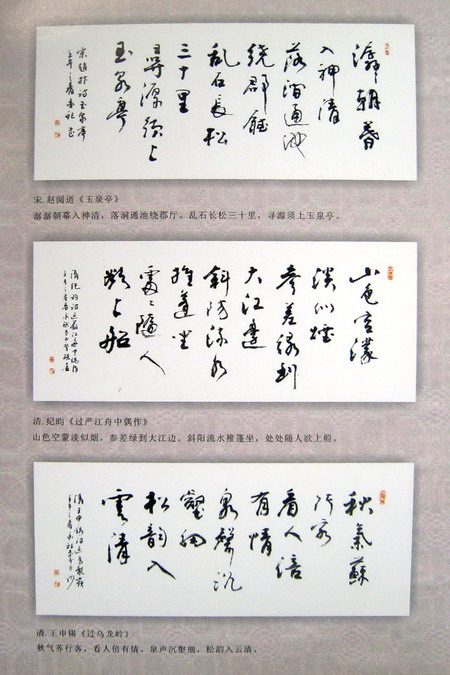 潺潺朝暮
入神清
落澗通池
绕郡廳
乱石長松
三十里
尋源須上
玉泉亭
宋.赵阅道《玉泉亭》
潺潺朝幕入神清，落涧通池绕郡厅。乱石长松三十里，寻源须上玉泉亭。
山色空濛
淡似烟
參差绿到
大江邊
斜陽流水
推篷坐
處處隨人
欲上船
清.纪昀《过严江舟中偶作》
山色空蒙淡似烟，参差绿到大江边。斜阳流水推篷坐，处处随人欲上船。
秋氣蘇
行客
看人倍
有情
泉聲沉
壑細
松韵入
雲清
清.王申锡《过乌龙岭》
秋气苏行客，看人倍有情，泉声沉壑细，松韵入云清。